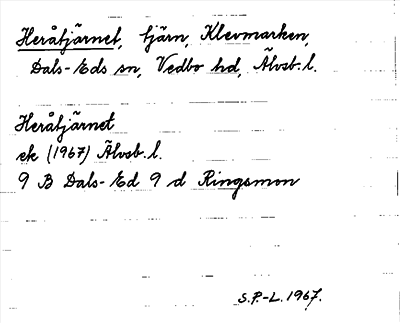 Heråtjärnet, tjärn, Klevmarken,
Dals-Eds sn, Vedbo hd, Älvsb. l.
Heråtjärnet
ek (1967) Älvsb. l.
9 B Dals-Ed 9 d Ringsmon
S.P.-L. 1967.